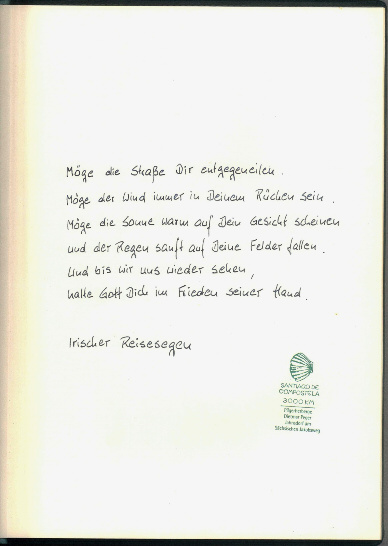 Möge die Straße Dir entgegeneilen.
Möge der Wind immer in Deinem Rücken sein.
Möge die Sonne warm auf Dein Gesicht scheinen
und der Regen sanft auf Deine Felder fallen.
Und bis wir uns wieder sehen,
halte Gott Dich im Frieden seiner Hand.
Irischer Reisesegen
SANTIAGO DE
COMPOSTELA
3000 KM
Pilgerherberge
Sächsischen Jakobsweg